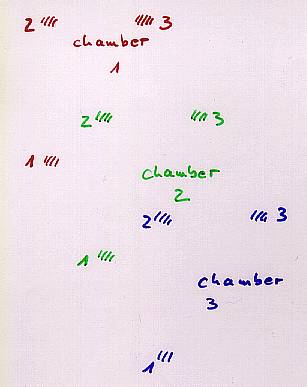 2 //// //// 3
chamber
1
2 //// //// 3
1 ////
chamber
2
2 //// //// 3
1 ////
chamber
3
1 ///